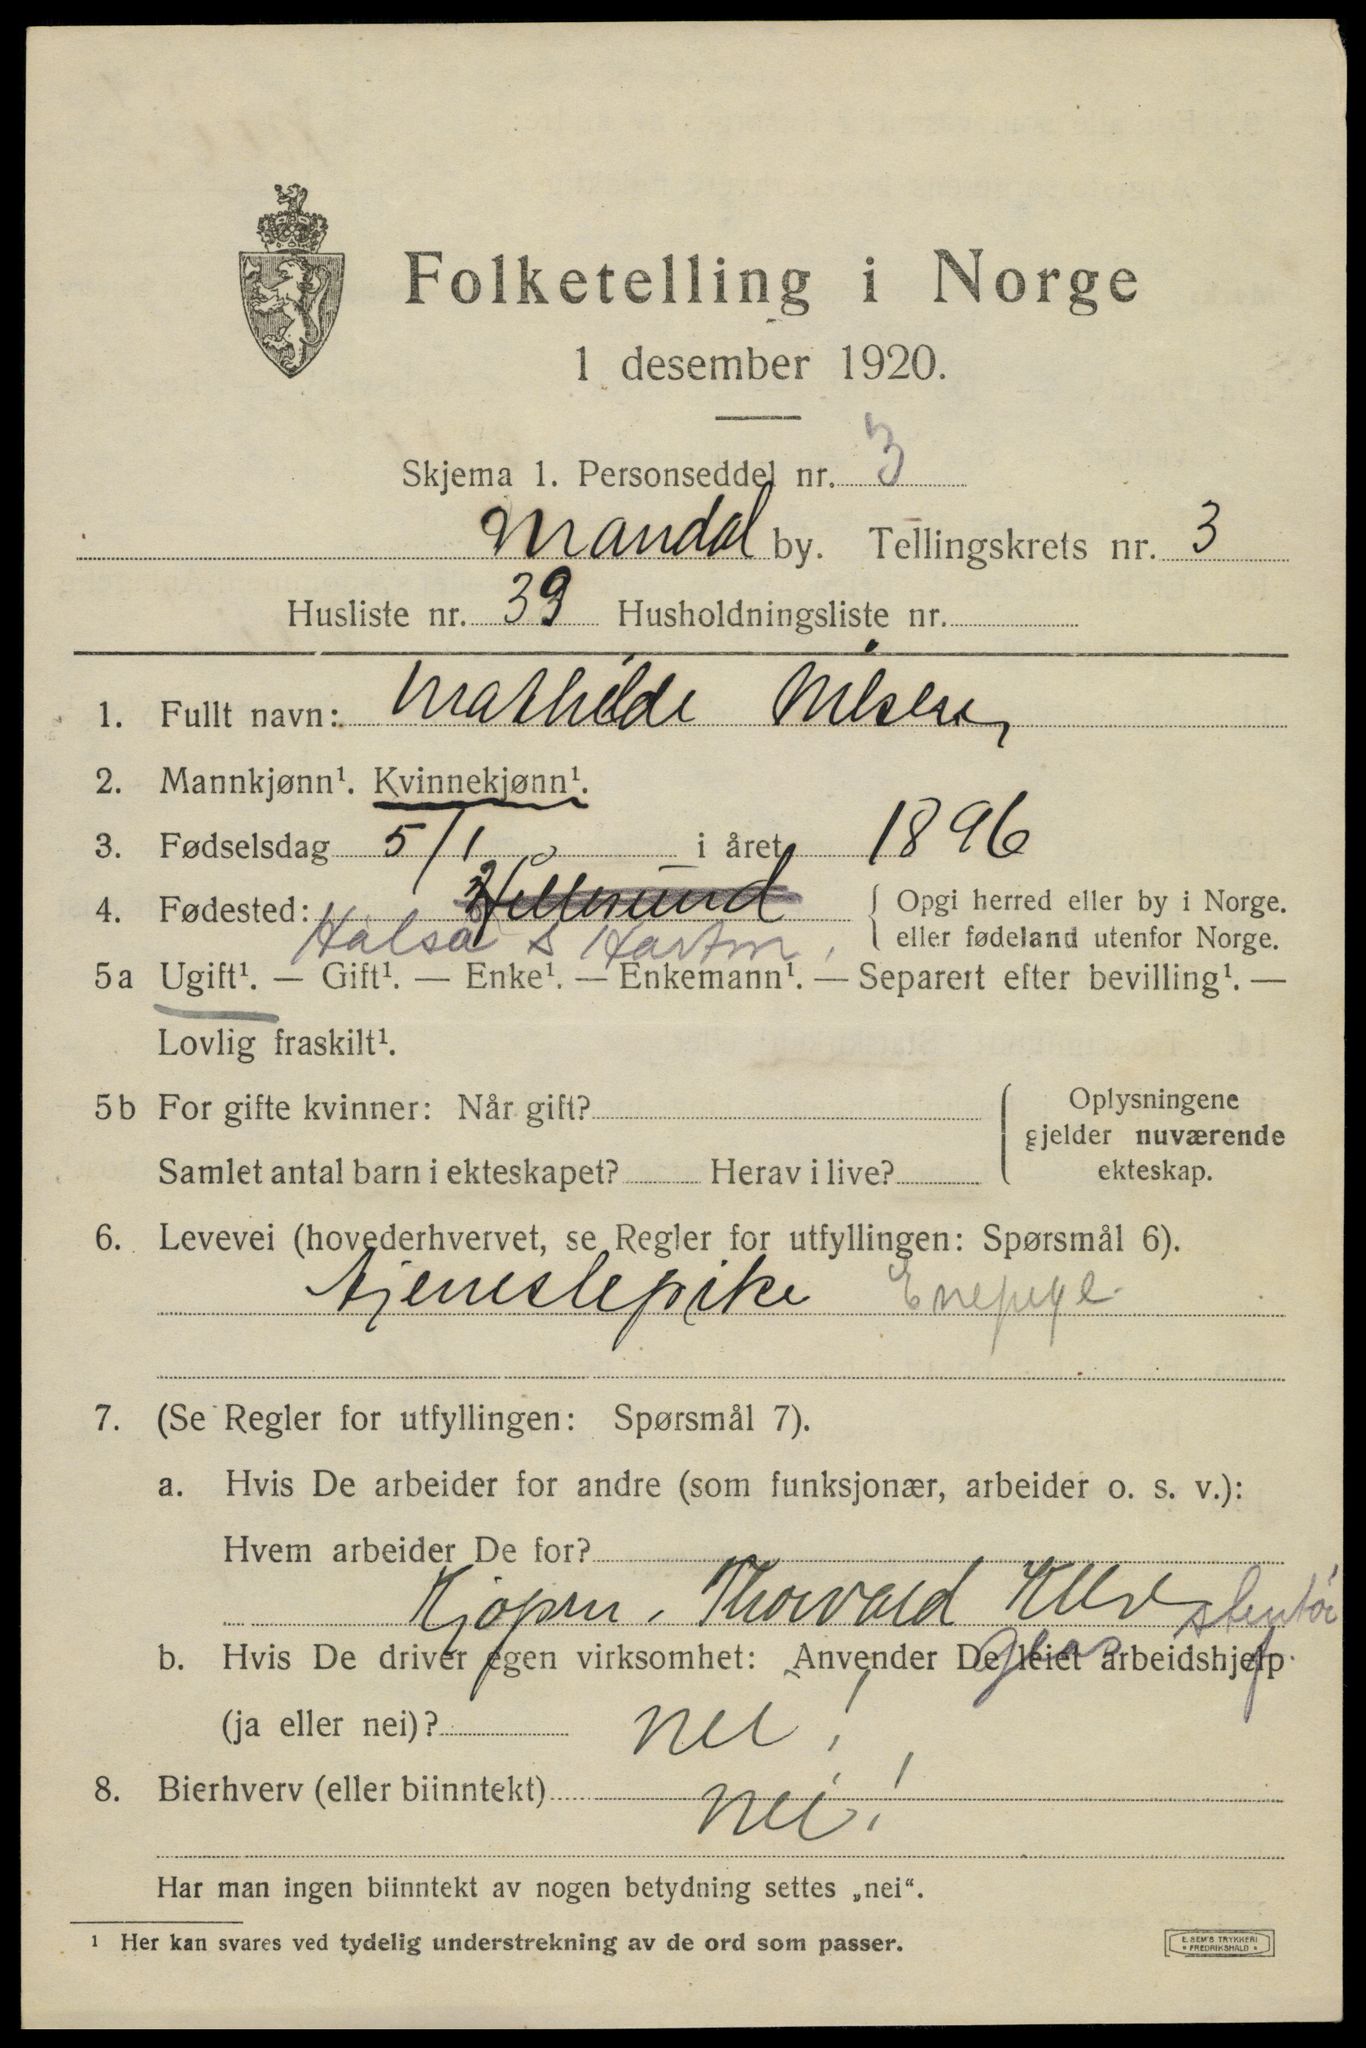 Folketelling i Norge
1 desember 1920.
Skjema 1. Personseddel nr. 3
Mandal by. Tellingskrets nr. 3
Husliste nr. 39 Husholdningsliste nr.
1. Fullt navn: Mathilde Nilsen
2. Mannkjønn¹. Kvinnekjønn¹.
3. Fødselsdag 5/1 i året 1896
4. Fødested: Hellesund { Opgi herred eller by i Norge.
eller fødeland utenfor Norge.
Halsa & Hartm.
5a Ugift¹. — Gift¹. — Enke¹. — Enkemann¹. — Separert efter bevilling¹. —
Lovlig fraskilt¹.
5b For gifte kvinner: Når gift? { Oplysningene
gjelder nuværende
Samlet antal barn i ekteskapet? Herav i live? ekteskap.
6. Levevei (hovederhvervet, se Regler for utfyllingen: Spørsmål 6).
Tjenestepike Enepige
7. (Se Regler for utfyllingen: Spørsmål 7).
a. Hvis De arbeider for andre (som funksjonær, arbeider o. s. v.):
Hvem arbeider De for?
Kjøpm. Thorvald stentøi
glas
b. Hvis De driver egen virksomhet: Anvender De leiet arbeidshjelp
(ja eller nei)? nei!
8. Bierhverv (eller biinntekt) nei!
Har man ingen biinntekt av nogen betydning settes „nei“.
¹ Her kan svares ved tydelig understrekning av de ord som passer.
E. SEM'S TRYKKERI
FREDRIKSHALD